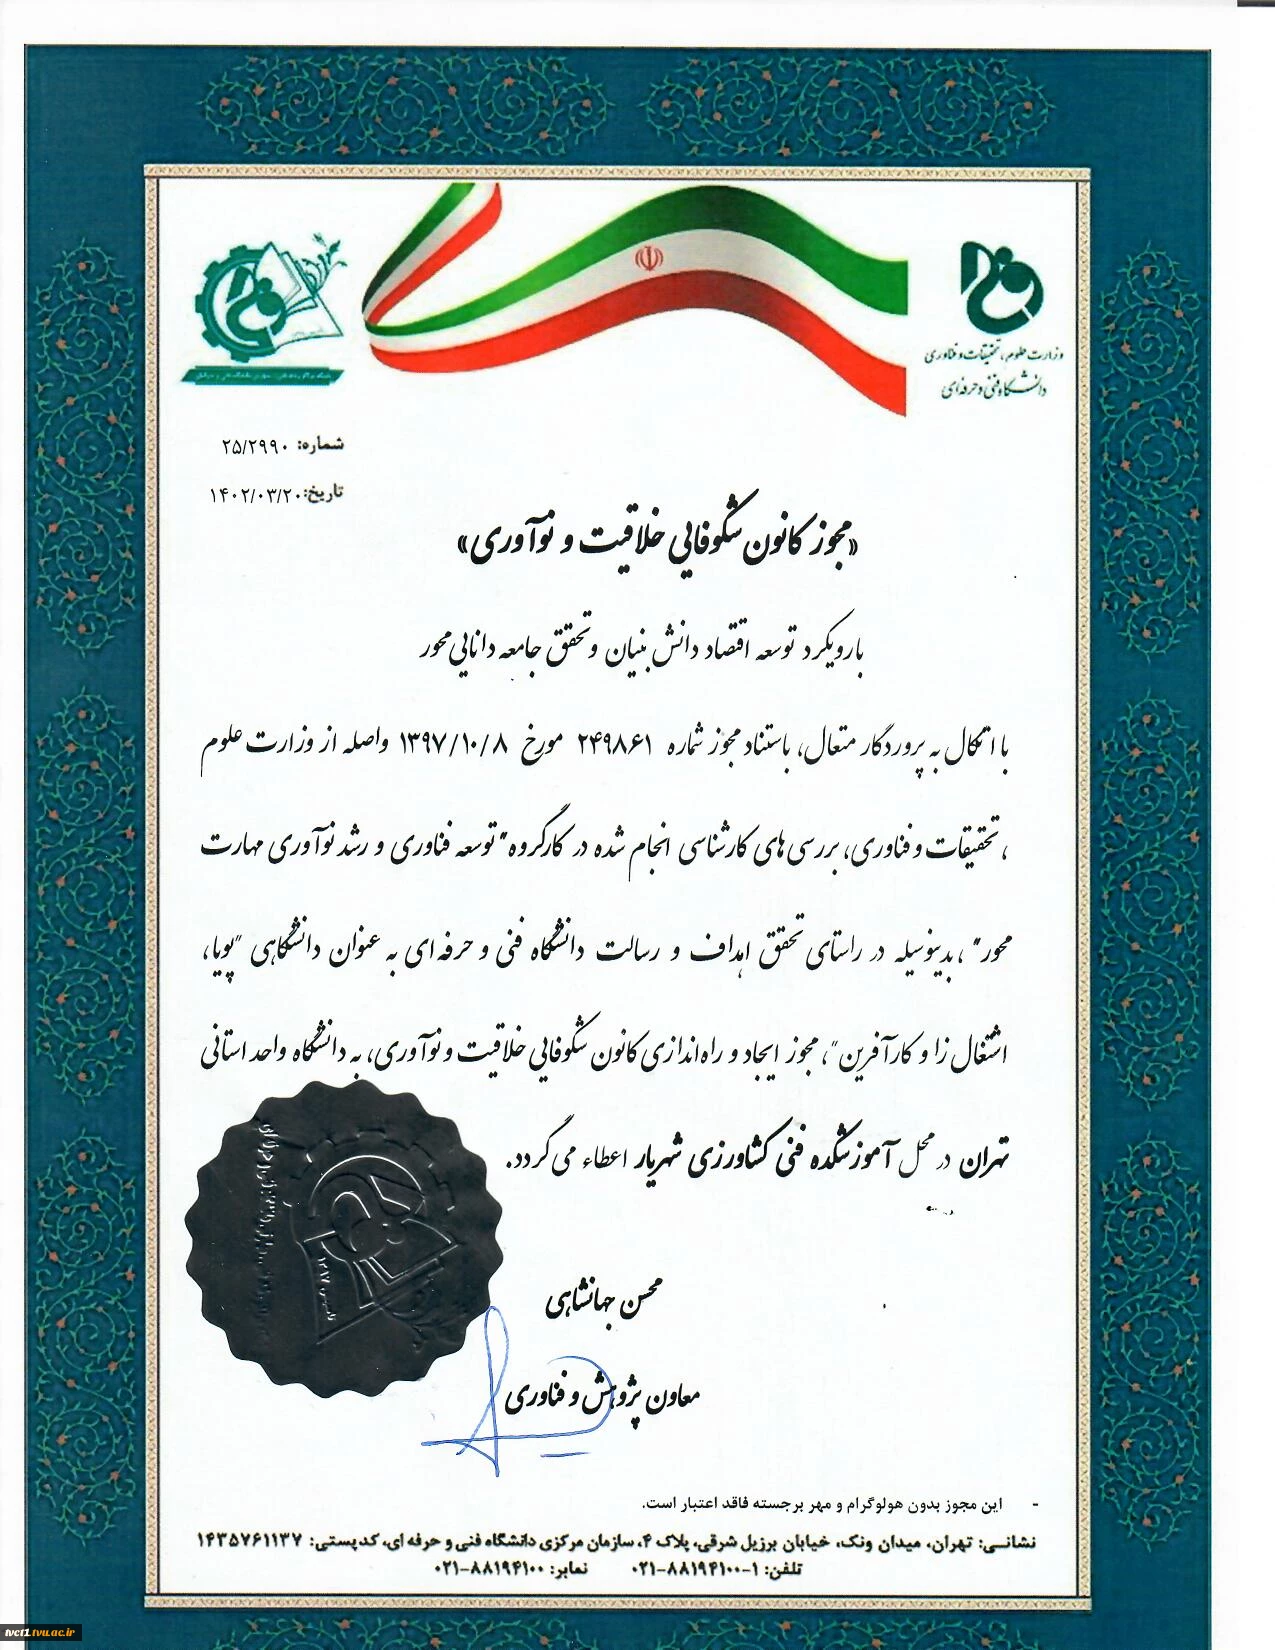 وزارت علوم، تحقیقات و فناوری
دانشگاه فنی و حرفه ای
شماره: ۲۵/۲۹۹۰
تاریخ: ۱۴۰۲/۰۳/۲۰
«مجوز کانون شکوفایی خلاقیت و نوآوری»
با رویکرد توسعه اقتصاد دانش بنیان و تحقق جامعه دانایی محور
با اتکال به پروردگار متعال، باستناد مجوز شماره ۲۴۹۸۶۱ مورخ ۱۳۹۷/۱۰/۸ واصله از وزارت علوم
، تحقیقات و فناوری، بررسی های کارشناسی انجام شده در کارگروه "توسعه فناوری و رشد نوآوری مهارت
محور"، بدینوسیله در راستای تحقق اهداف و رسالت دانشگاه فنی و حرفه ای به عنوان دانشگاهی "پویا،
اشتغال زا و کارآفرین"، مجوز ایجاد و راه اندازی کانون شکوفایی خلاقیت و نوآوری، به دانشگاه واحد استانی
تهران در محل آموزشکده فنی کشاورزی شهریار اعطاء می گردد.
محسن جهانشاهی
معاون پژوهش و فناوری
- این مجوز بدون هولوگرام و مهر برجسته فاقد اعتبار است.
نشانی: تهران، میدان ونک، خیابان برزیل شرقی، پلاک ۴، سازمان مرکزی دانشگاه فنی و حرفه ای، کدپستی: ۱۴۳۵۷۶۱۱۳۷
تلفن: ۱-۸۸۱۹۴۱۰۰-۰۲۱ نمابر: ۸۸۱۹۴۱۰۰-۰۲۱
tvct1.tvu.ac.ir